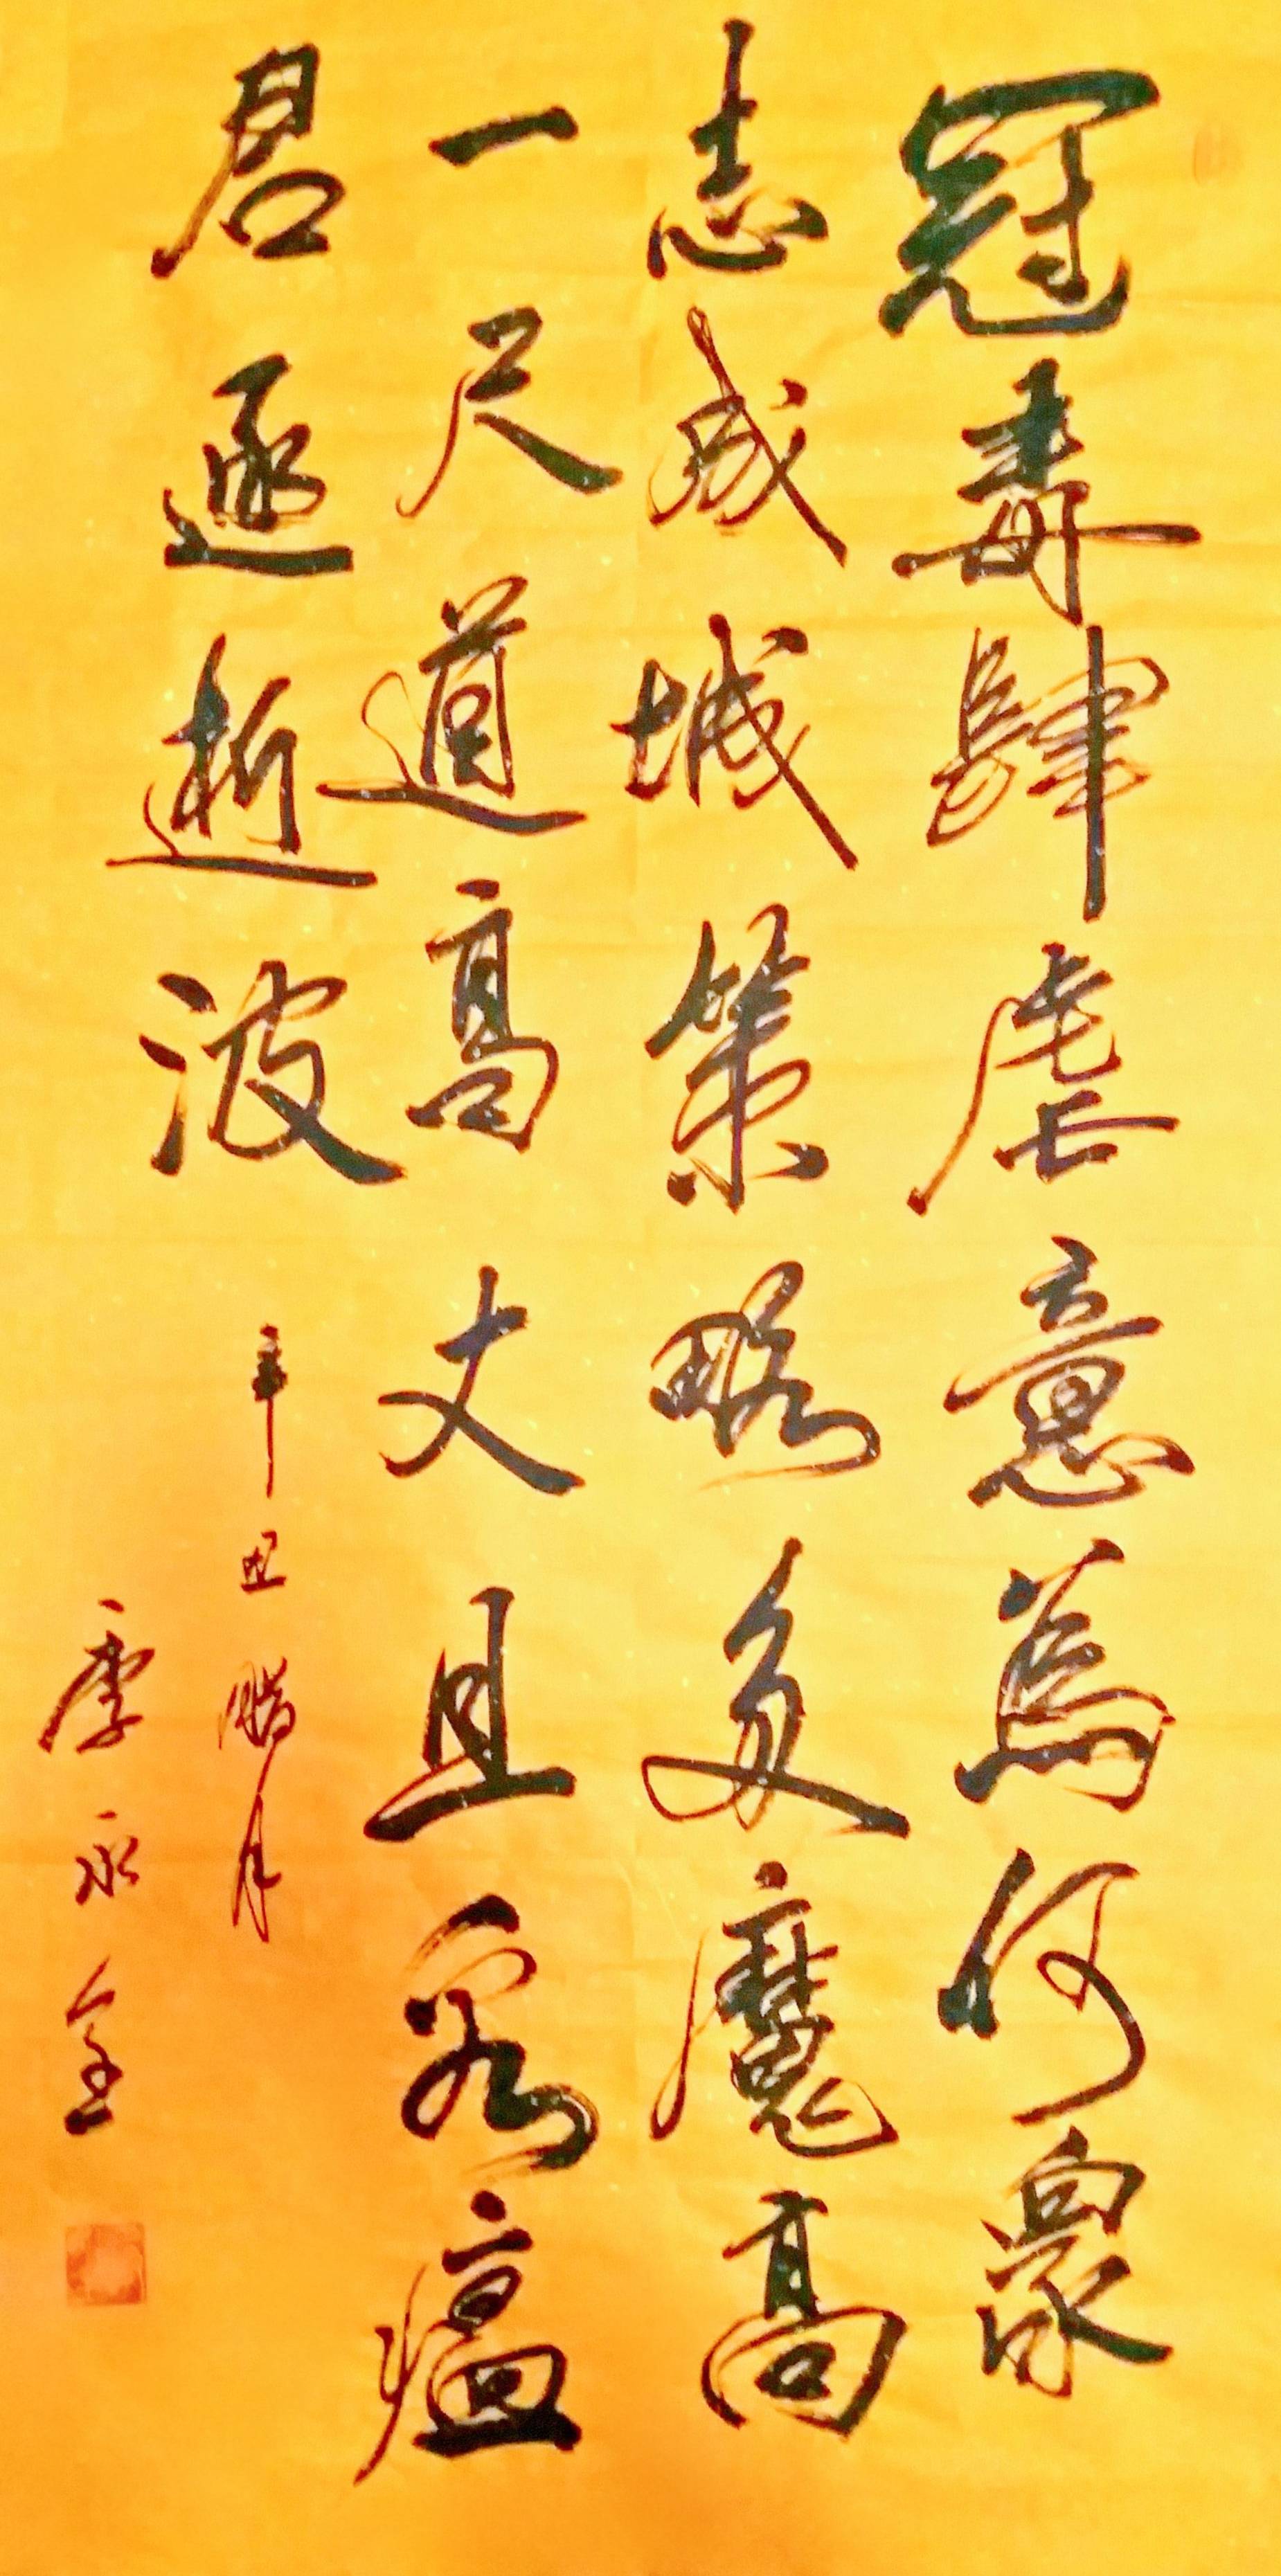 冠毒肆虐意為何眾
志成城策略多魔高
一尺道高丈且看瘟
君逐逝波
辛丑臘月
李永全